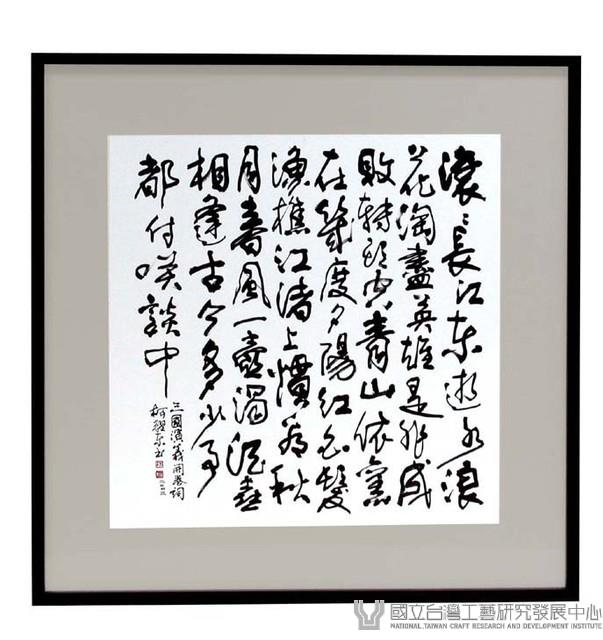 滾〻長江東逝水浪
花淘盡英雄是非成
敗轉頭空青山依舊
在幾度夕陽紅白髮
漁樵江渚上慣看秋
月春風一壺濁酒喜
相逢古今多少事
都付咲談中
三國演義開卷詞
柯耀東書
國立台灣工藝研究發展中心
NATIONAL TAIWAN CRAFT RESEARCH AND DEVELOPMENT INSTITUTE